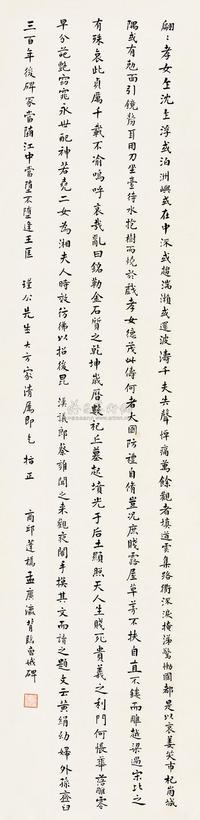 翩:孝女乍沈乍浮或泊洲嶼或在中流或趨湍瀨或還波濤千夫失聲悼痛萬餘觀者填道雲集路衢淚掩涕驚慟國都是以哀姜哭市杞崩城
隅或有剋面引鏡剺耳用刀坐臺待水抱樹而燒於戲孝女德茂此儔何者大國防禮自脩豈況庶賤露屋草茅不扶自直不鏤而雕越梁過宋比之
有殊哀此貞厲千載不渝嗚呼哀哉亂曰銘勒金石質之乾坤歲曆數祀丘墓起墳光于后土顯照天人生賤死貴義之利門何悵華落雕零
早分葩艷窈窕永世配神若堯二女為湘夫人時效彷彿以招後昆 漢議郎蔡雍聞之來觀夜闇手摸其文而讀之題文云黃絹幼婦外孫齏臼
三百年後碑冢當墮江中當墮不墮逢王叵 瑾公先生大方家清屬即乞指正 商邱蓬橋孟廣瀛背臨曹娥碑